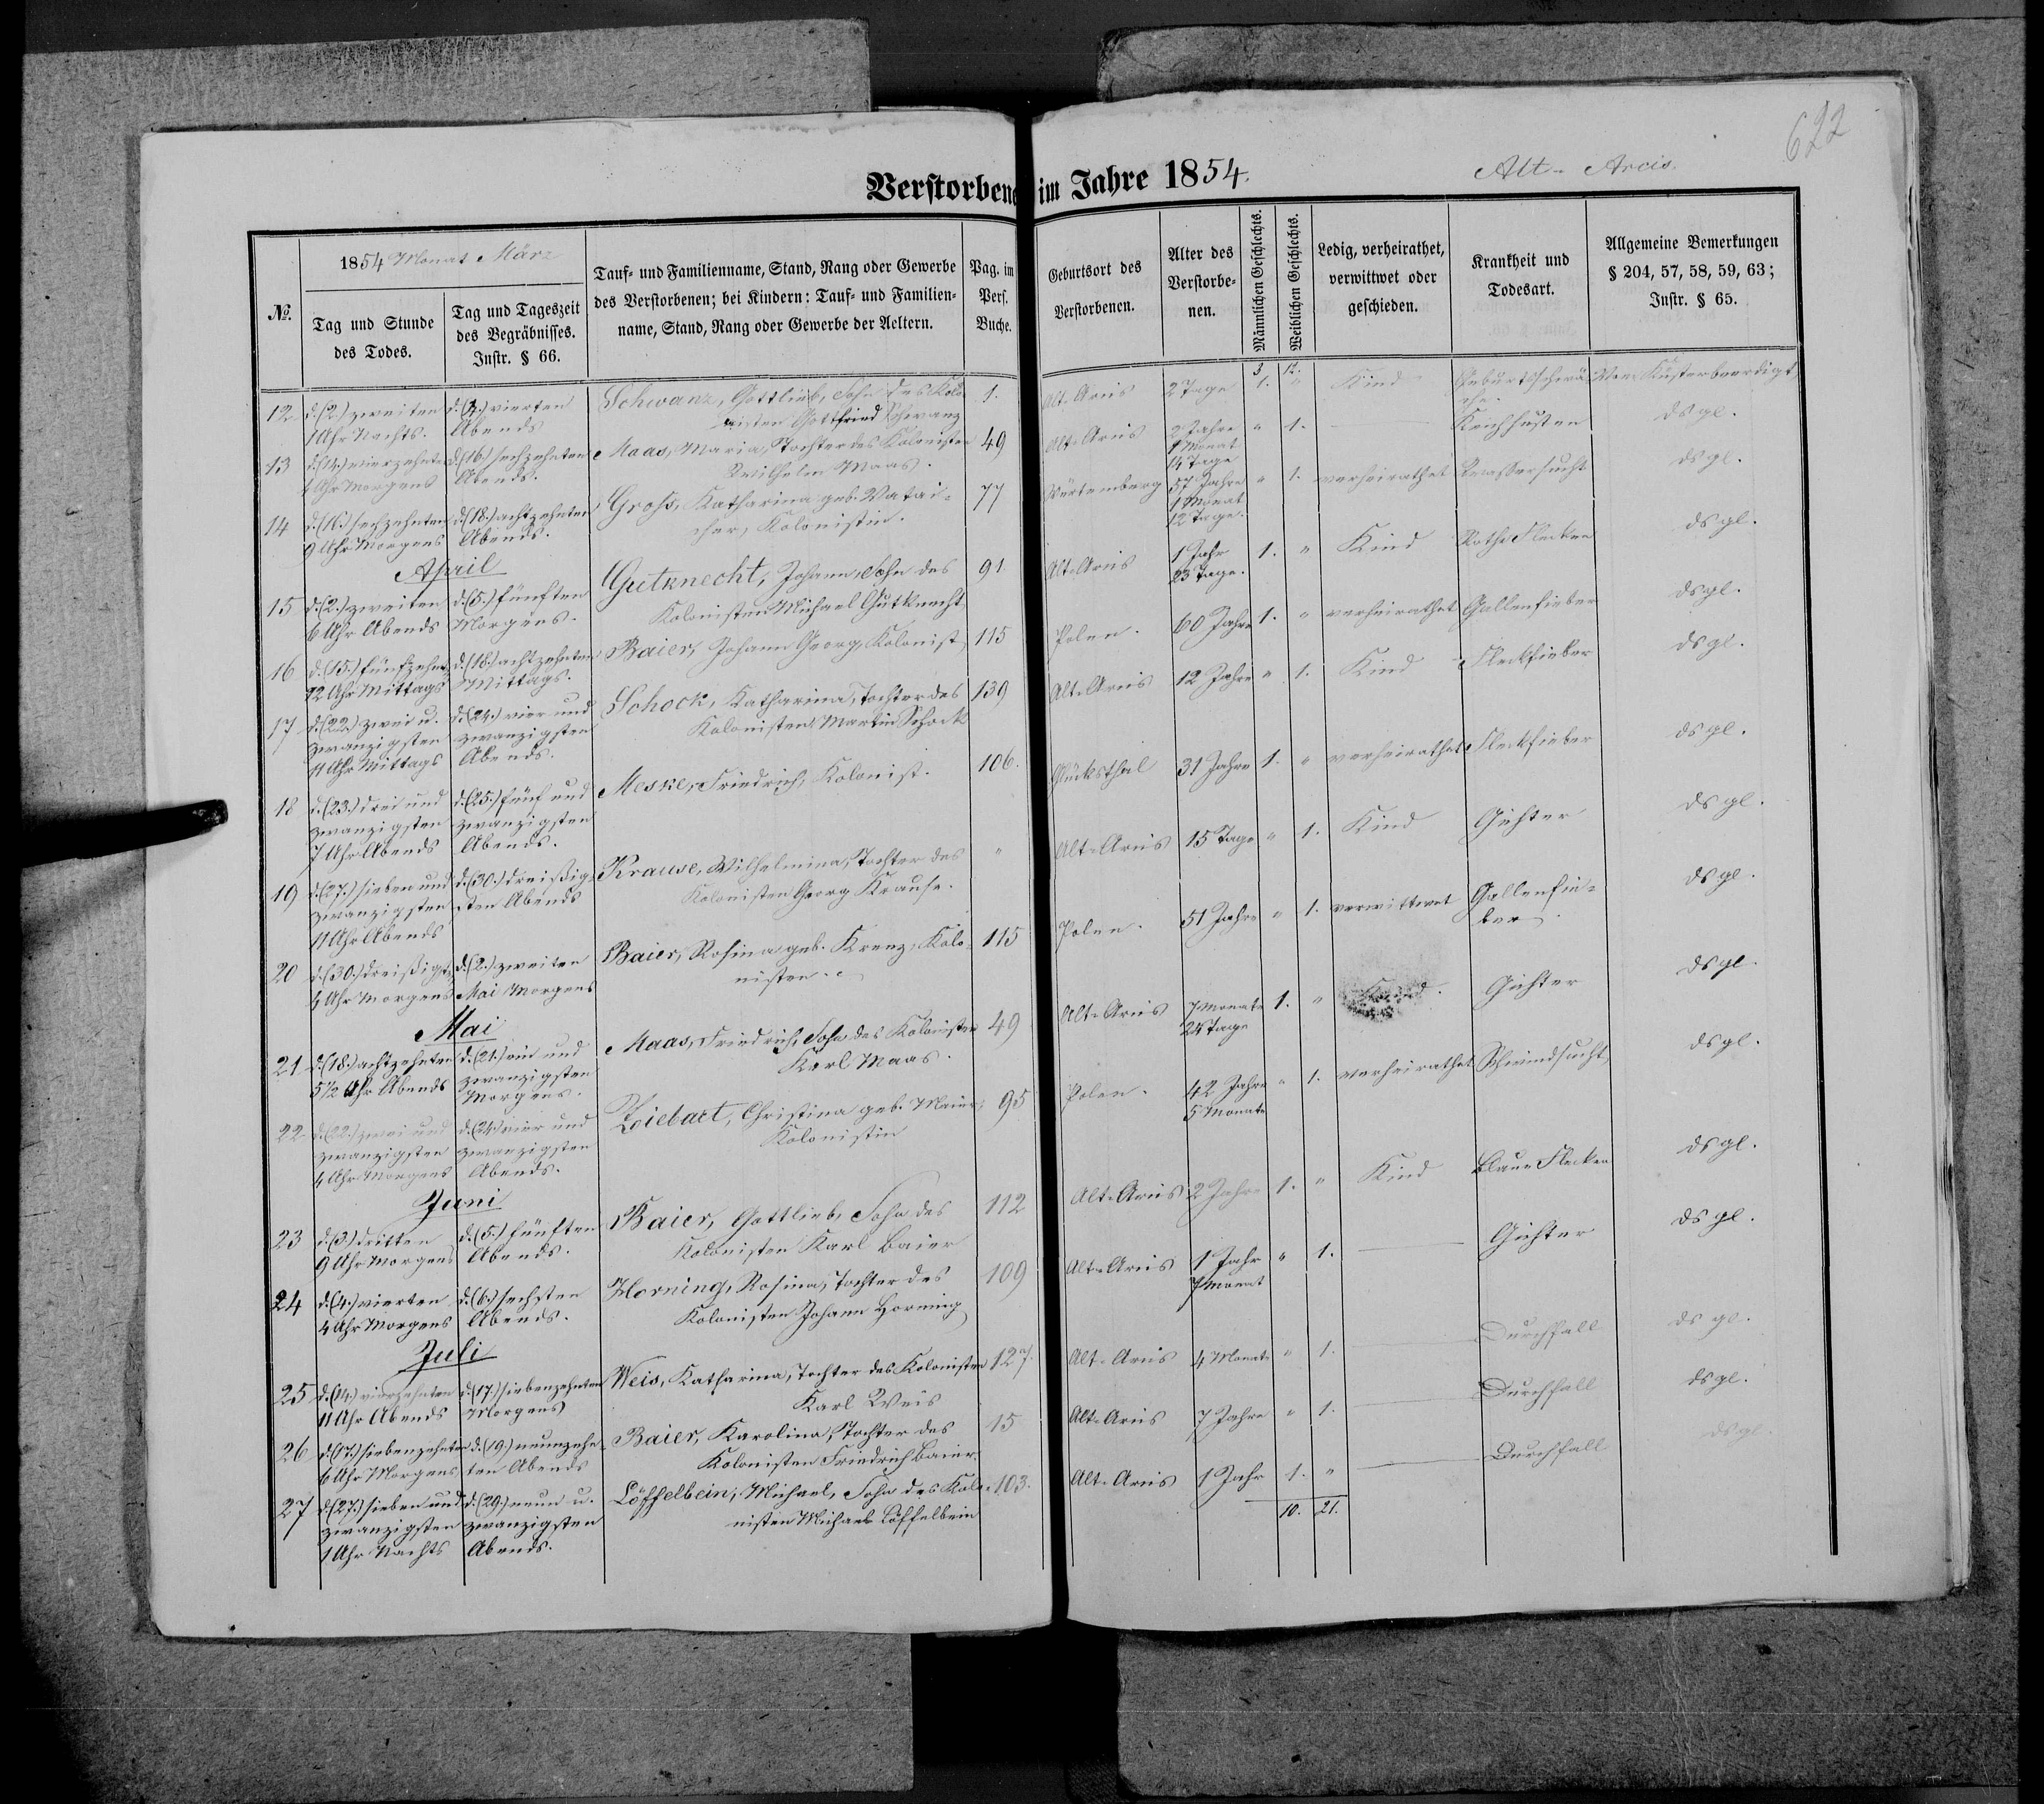 622
Verstorbene im Jahre 1854.
Alt-Arcis.
№.
1854 Monat März
Tag und Stunde
des Todes.
Tag und Tageszeit
des Begräbnisses.
Instr. § 66.
Tauf- und Familienname, Stand, Rang oder Gewerbe
des Verstorbenen; bei Kindern: Tauf- und Familien-
name, Stand, Rang oder Gewerbe der Aeltern.
Pag. im
Pers.
Buche.
Geburtsort des
Verstorbenen.
Alter des
Verstorbe-
nen.
Männlichen Geschlechts.
Weiblichen Geschlechts.
Ledig, verheirathet,
verwittwet oder
geschieden.
Krankheit und
Todesart.
Allgemeine Bemerkungen
§ 204, 57, 58, 59, 63;
Instr. § 65.
3 12.
12 d. (2.) zweiten d. (4.) vierten Schwanz, Gottlieb, Sohn des Kolo- 1. Alt-Arcis 2 Tage 1. " Kind Geburtsschwä- Von Küster beerdigt
1 Uhr Nachts. Abends nisten Gottfried Schwanz che.
13 d. (14.) vierzehnten d. (16.) sechzehnten Maas, Maria, Tochter des Kolonisten 49 Alt-Arcis 2 Jahre " 1. Keichhusten dsgl.
4 Uhr Morgens Abends. Wilhelm Maas. 1 Monat
14 Tage
14 d. (16.) sechzehnten d. (18.) achtzehnten Gross, Katharina geb. 77 Würtemberg 57 Jahre " 1. verheirathet Wassersucht dsgl.
9 Uhr Morgens Abends. cher, Kolonistin. 1 Monat
12 Tage.
April
15 d. (2.) zweiten d. (5.) fünften Gutknecht, Johann, Sohn des 91 Alt-Arcis 1 Jahr 1. " Kind Rothe Flecken dsgl.
6 Uhr Abends Morgens. Kolonisten Michael Gutknecht 23 Tage.
16 d. (15.) fünfzehnt. d. (18.) achtzehnten Baier, Johann Georg, Kolonist 115 Polen. 60 Jahre 1. " verheirathet Gallenfieber dsgl.
12 Uhr Mittags Mittags.
17 d. (22.) zwei u. d. (24.) vier und Schock, Katharina, Tochter des 139 Alt-Arcis 12 Jahre " 1. Kind Fleckfieber dsgl.
zwanzigsten zwanzigsten Kolonisten Martin Schock
11 Uhr Mittags Abends.
18 d. (23.) drei und d. (25.) fünf und Meske, Friedrich, Kolonist. 106. Glücksthal 31 Jahre 1. " verheirathet Fleckfieber dsgl.
zwanzigsten zwanzigsten
7 Uhr Abends Abends.
19 d. (27.) sieben und d. (30.) dreißig- Krause, Wilhelmina, Tochter des " Alt-Arcis 15 Tage " 1. Kind Gichter dsgl.
zwanzigsten sten Abends Kolonisten Georg Krause.
11 Uhr Abends
20 d. (30.) dreißigst. d. (2.) zweiten Baier, Rosina geb. Krenz, Kolo- 115 Polen. 51 Jahre " 1. verwittwet Gallenfie- dsgl.
4 Uhr Morgens Mai Morgens nisten. ber.
Mai
21 d. (18.) achtzehnten d. (21.) ein und Maas, Friedrich, Sohn des Kolonisten 49 Alt-Arcis 7 Monate 1. " Kind. Gichter dsgl.
5 1/2 Uhr Abends zwanzigsten Karl Maas. 24 Tage
Morgens.
22 d. (22.) zwei und d. (24.) vier und Ziebart, Christina geb. Maier, 95 Polen. 42 Jahre " 1. verheirathet Schwindsucht dsgl.
zwanzigsten zwanzigsten Kolonistin 5 Monate
4 Uhr Morgens Abends.
Juni
23 d. (3.) dritten d. (5.) fünften Baier, Gottlieb, Sohn des 112 Alt-Arcis 2 Jahre 1. " Kind Blaue Flecken dsgl.
9 Uhr Morgens Abends. Kolonisten Karl Baier
24 d. (4.) vierten d. (6.) sechsten Horning, Rosina, Tochter des 109 Alt-Arcis 1 Jahr " 1. Gichter dsgl.
4 Uhr Morgens Abends. Kolonisten Johann Horning Monat
Juli
25 d. (14.) vierzehnten d. (17.) siebenzehnten Weis, Katharina, Tochter des Kolonisten 127. Alt-Arcis 4 Monate " 1. Durchfall dsgl.
11 Uhr Abends Morgens Karl Weis
26 d. (17.) siebenzehnten d. (19.) neunzehn- Baier, Karolina, Tochter des 15 Alt-Arcis 7 Jahre " 1. Durchfall dsgl.
6 Uhr Morgens ten Abends Kolonisten Friedrich Baier.
27 d. (27.) sieben und d. (29.) neun u. Löffelbein, Michael, Sohn des Kolo- 103. Alt-Arcis 1 Jahr 1. " Durchfall dsgl.
zwanzigsten zwanzigsten nisten Michael Löffelbein 10. 21.
1 Uhr Nachts Abends.